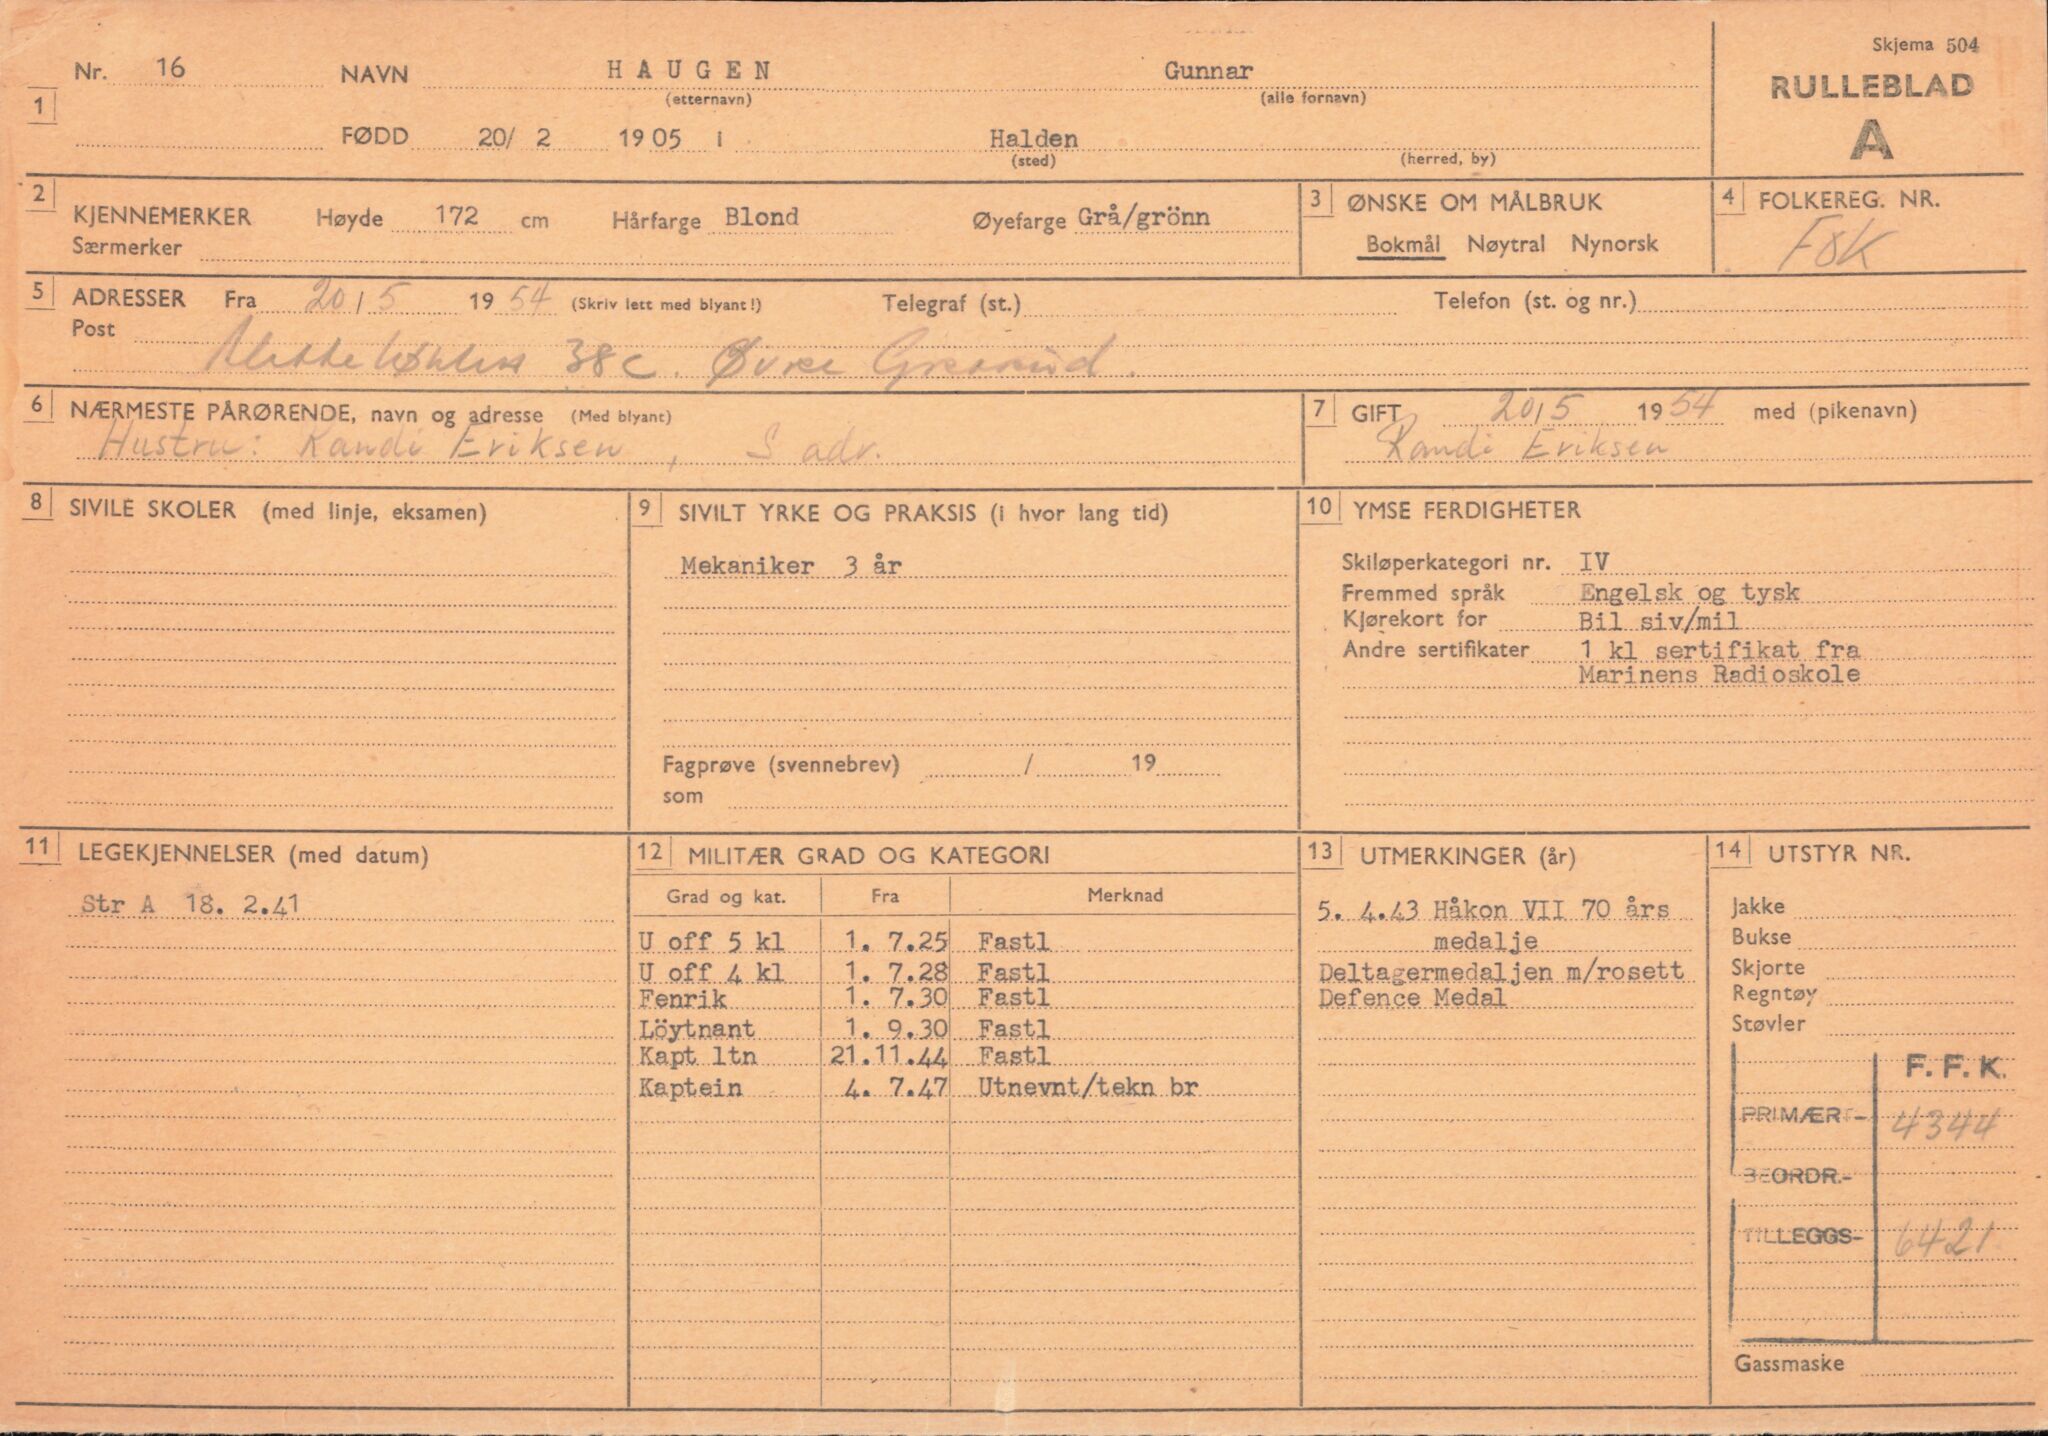 Skjema 504
Nr. 16 NAVN HAUGEN Gunnar RULLEBLAD
(etternavn) (alle fornavn)
1
A
FØDD 20/ 2 1905 i Halden
(sted) (herred, by)
2 KJENNEMERKER Høyde 172 cm Hårfarge Blond Øyefarge Grå/grönn
Særmerker
3 ØNSKE OM MÅLBRUK
Bokmål Nøytral Nynorsk
4 FOLKEREG. NR.
FSK
5 ADRESSER Fra 20/5 1954 (Skriv lett med blyant!) Telegraf (st.) Telefon (st. og nr.)
Post
38c. Øvre Gresrud.
6 NÆRMESTE PÅRØRENDE, navn og adresse (Med blyant)
Hustru: Randi Eriksen, S adr.
7 GIFT 20/5 1954 med (pikenavn)
Randi Eriksen
8 SIVILE SKOLER (med linje, eksamen)
9 SIVILT YRKE OG PRAKSIS (i hvor lang tid)
Mekaniker 3 år
Fagprøve (svennebrev) / 19
som
10 YMSE FERDIGHETER
Skiløperkategori nr. IV
Fremmed språk Engelsk og tysk
Kjørekort for Bil siv/mil
Andre sertifikater 1 kl sertifikat fra
Marinens Radioskole
11 LEGEKJENNELSER (med datum)
Str A 18. 2.41
12 MILITÆR GRAD OG KATEGORI
Grad og kat. Fra Merknad
U off 5 kl 1. 7.25 Fastl
U off 4 kl 1. 7.28 Fastl
Fenrik 1. 7.30 Fastl
Löytnant 1. 9.30 Fastl
Kapt ltn 21.11.44 Fastl
Kaptein 4. 7.47 Utnevnt/tekn br
13 UTMERKINGER (år)
5. 4.43 Håkon VII 70 års
medalje
Deltagermedaljen m/rosett
Defence Medal
14 UTSTYR NR.
Jakke
Bukse
Skjorte
Regntøy
Støvler
F. F. K.
PRIMÆRT- 4344
BEORDR.-
TILLEGGS- 6421
Gassmaske